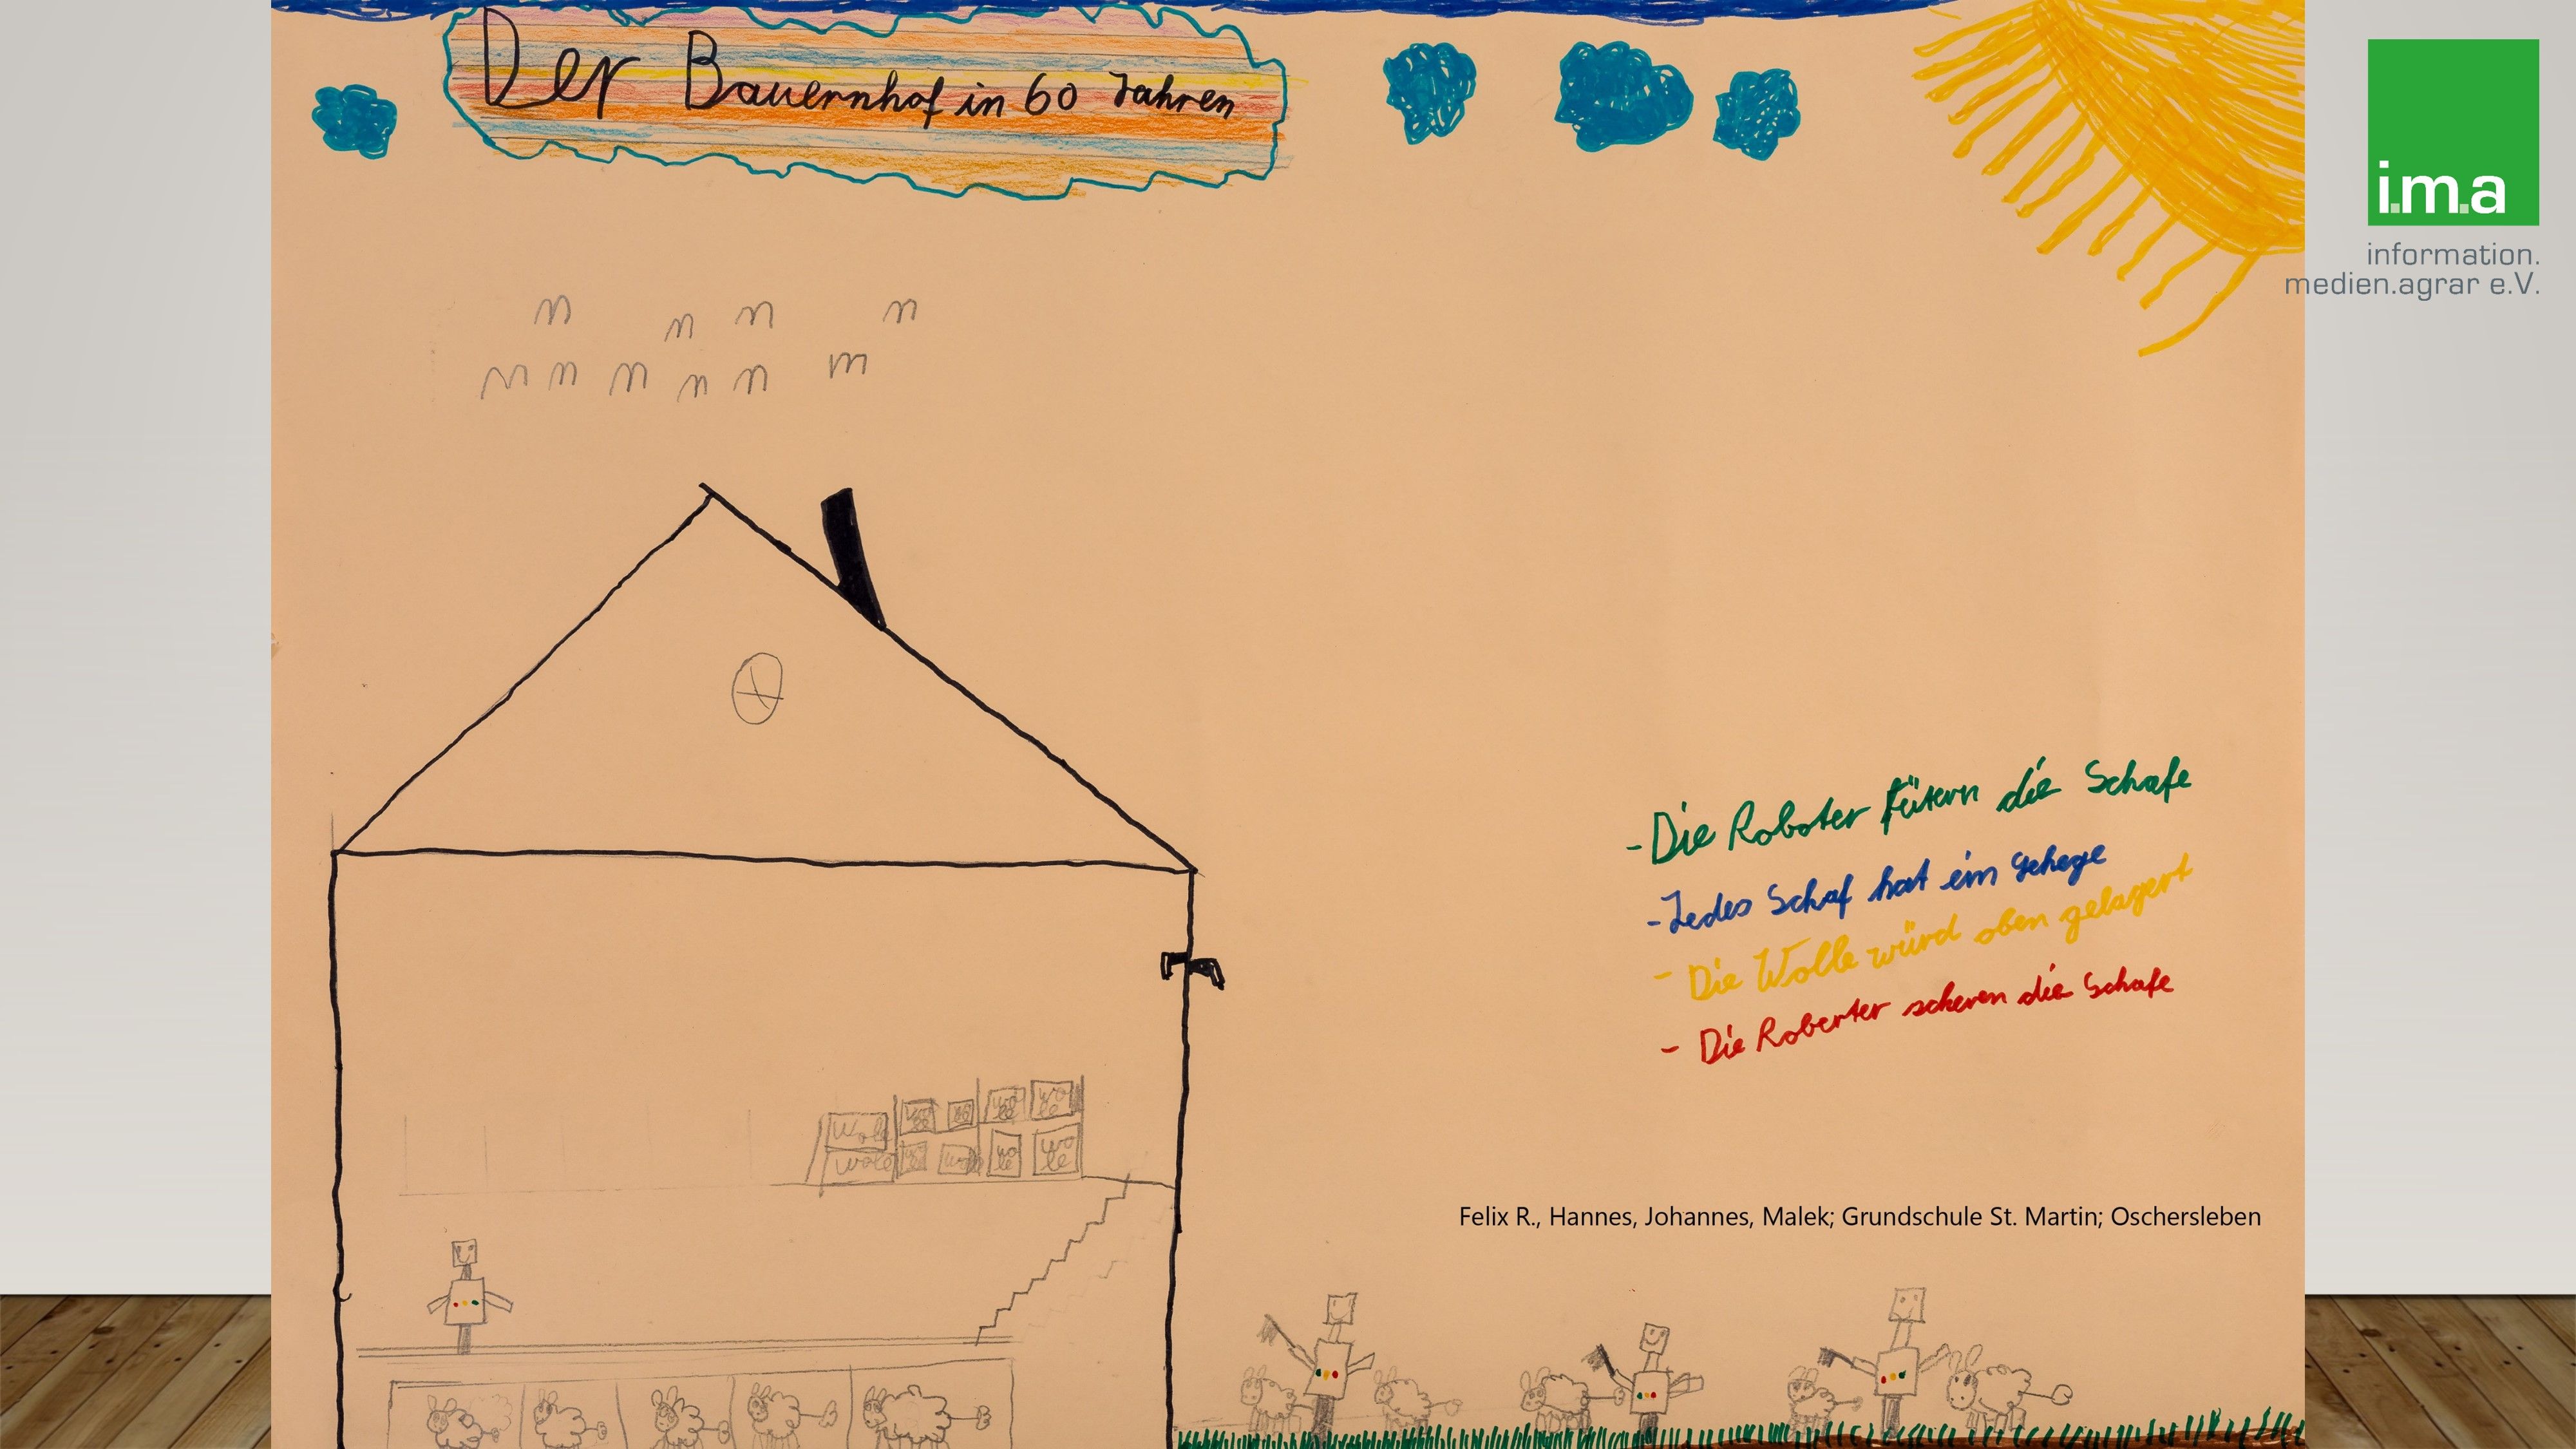 Der Bauernhof in 60 Jahren
i.m.a
information.
medien.agrar e.V.
- Die Roboter fütern die Schafe
- Jedes Schaf hat ein gehege
- Die Wolle würd oben gelagert
- Die Roberter scheren die Schafe
Wole
wole
wo
le
wo
le
wo
le
wo
le
Felix R., Hannes, Johannes, Malek; Grundschule St. Martin; Oschersleben